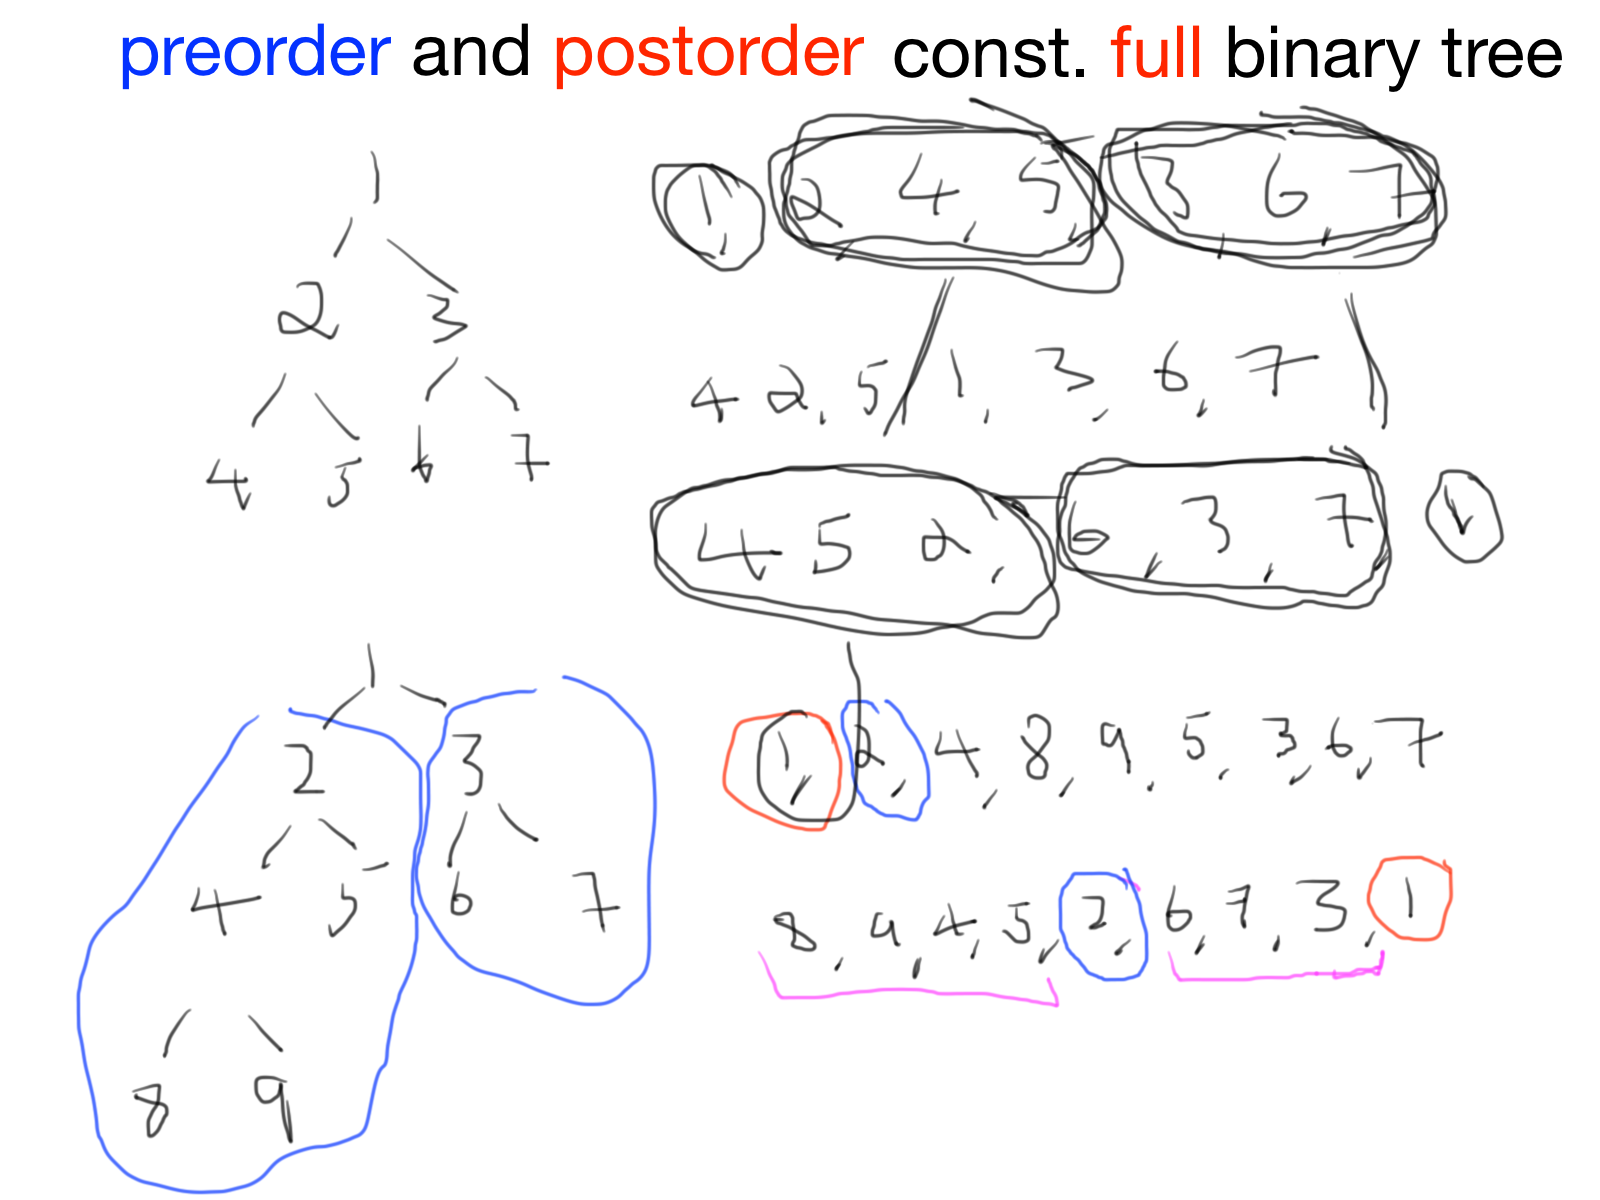 preorder and postorder const. full binary tree
1
2 3
4 5 6 7
1, 2, 4, 5, 3, 6, 7
4 2, 5 1, 3, 6, 7
4 5 2, 6, 3, 7 1
1
2 3
4 5 6 7
8 9
1, 2, 4, 8, 9, 5, 3, 6, 7
8, 9, 4, 5, 2, 6, 7, 3, 1